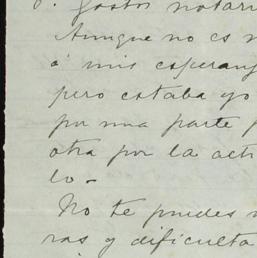 Gastos notari
Aunque no es m
á mis esperanz
pero estaba yo
por una parte p
otra por la acti
lo-
No te puedes
ras y dificulta